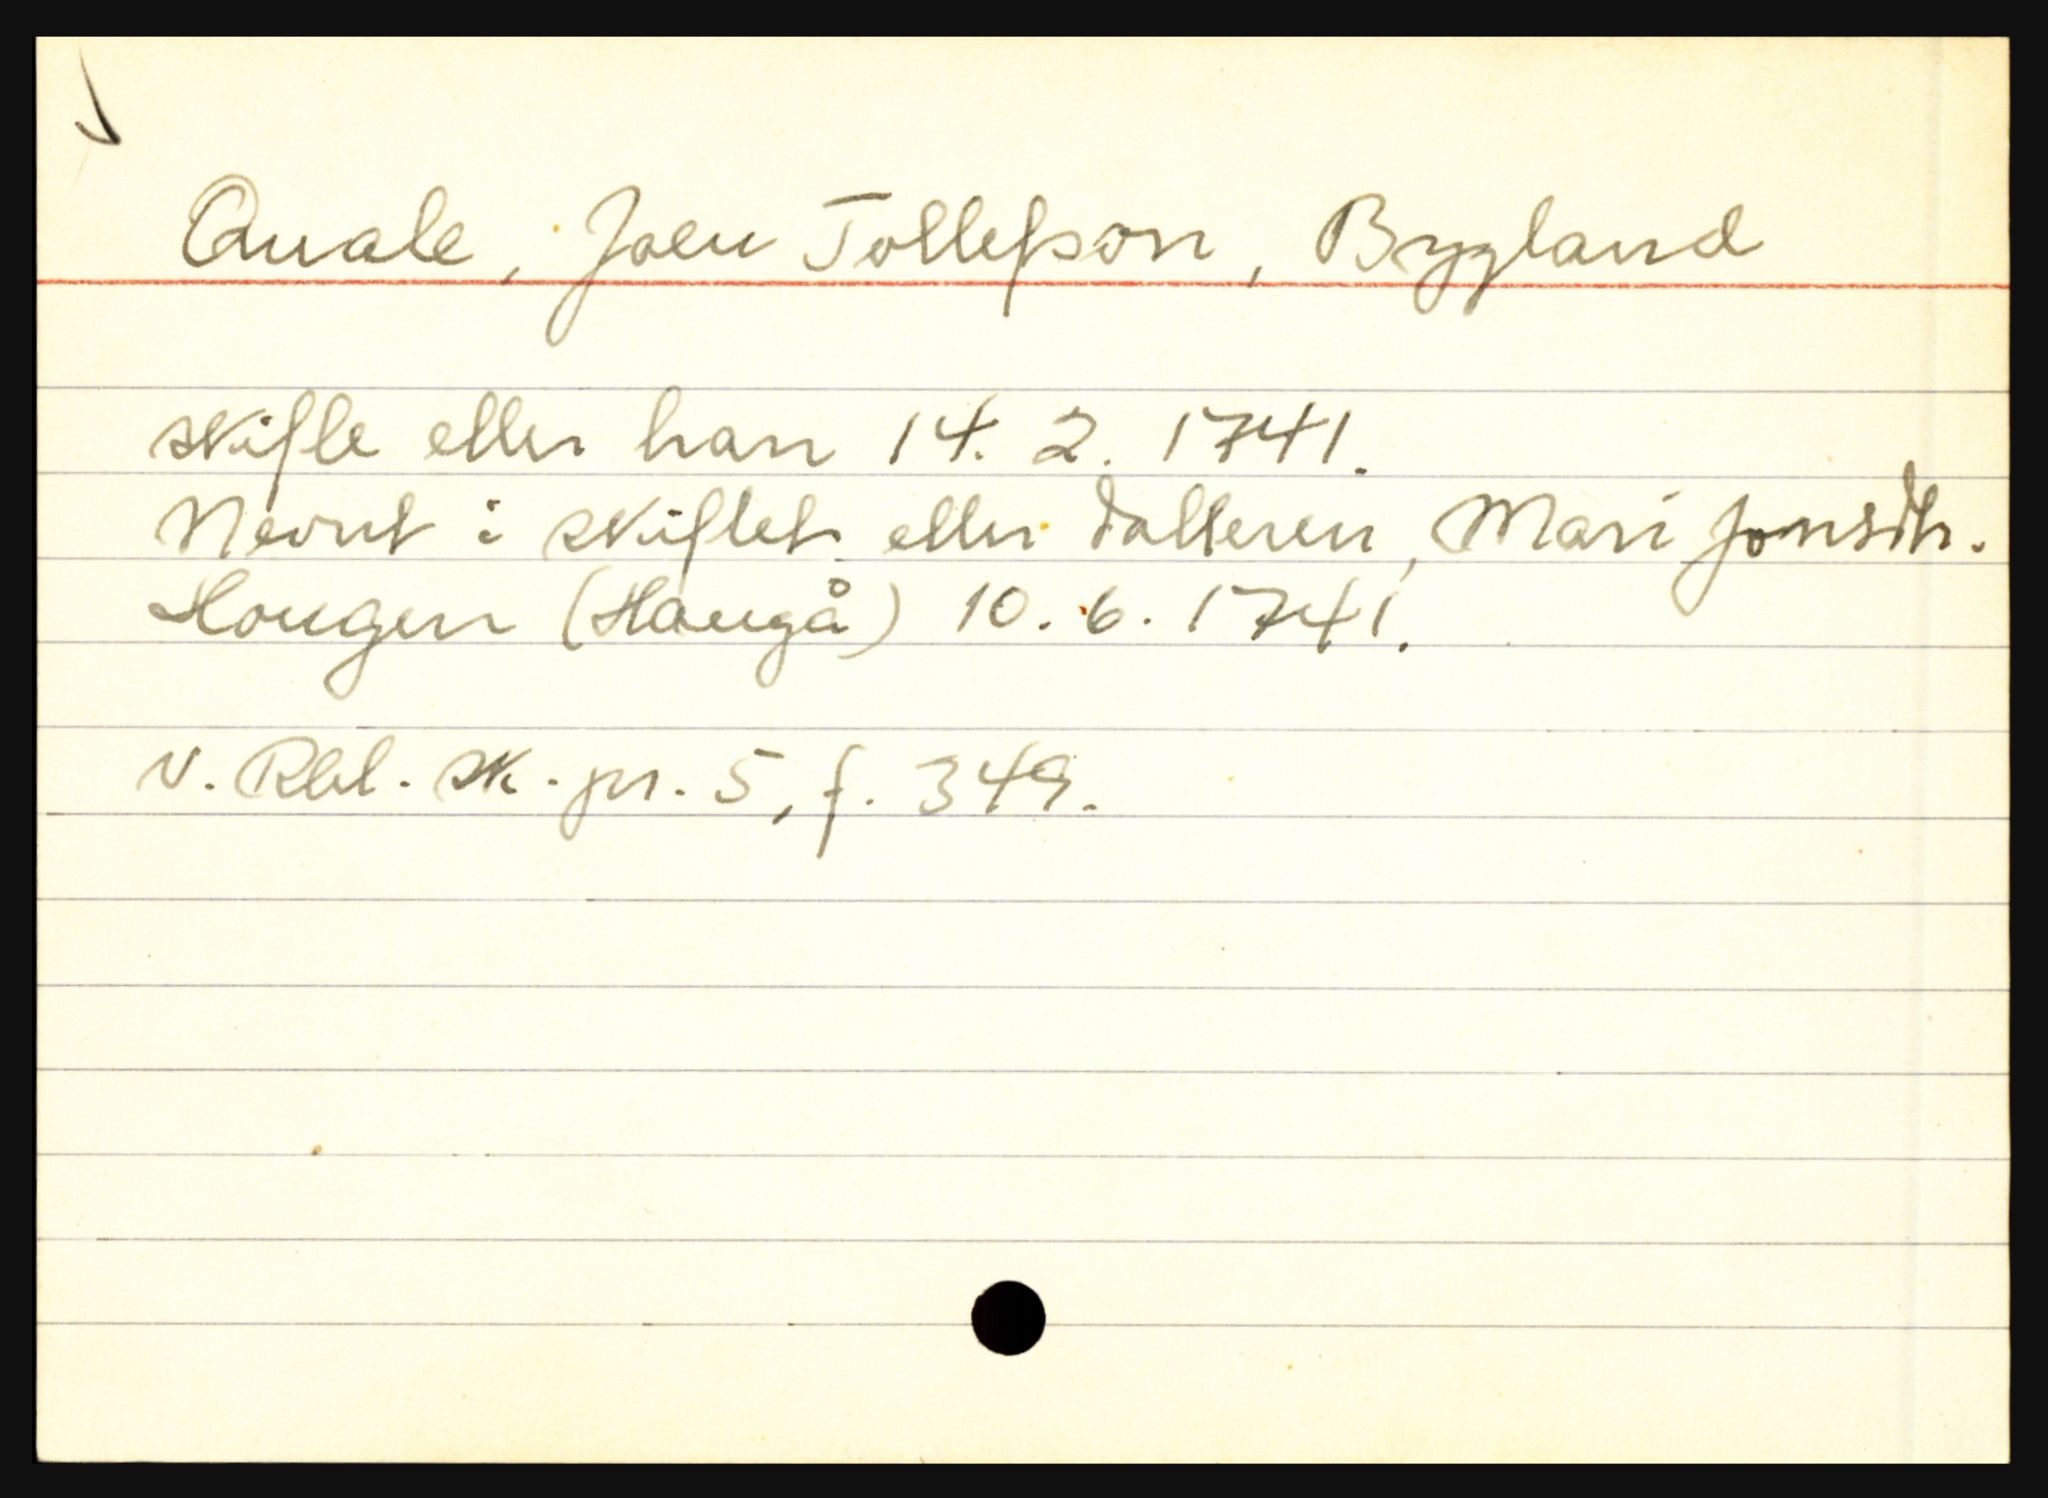 Quale, Joen Tollefson, Bygland
skifte etter han 14. 2. 1741.
Nevnt i skiftet etter dotteren, Mari Jonsdtr.
Hougen (Haugå) 10. 6. 1741.
V. Rbl. sk. pr. 5, f. 349.